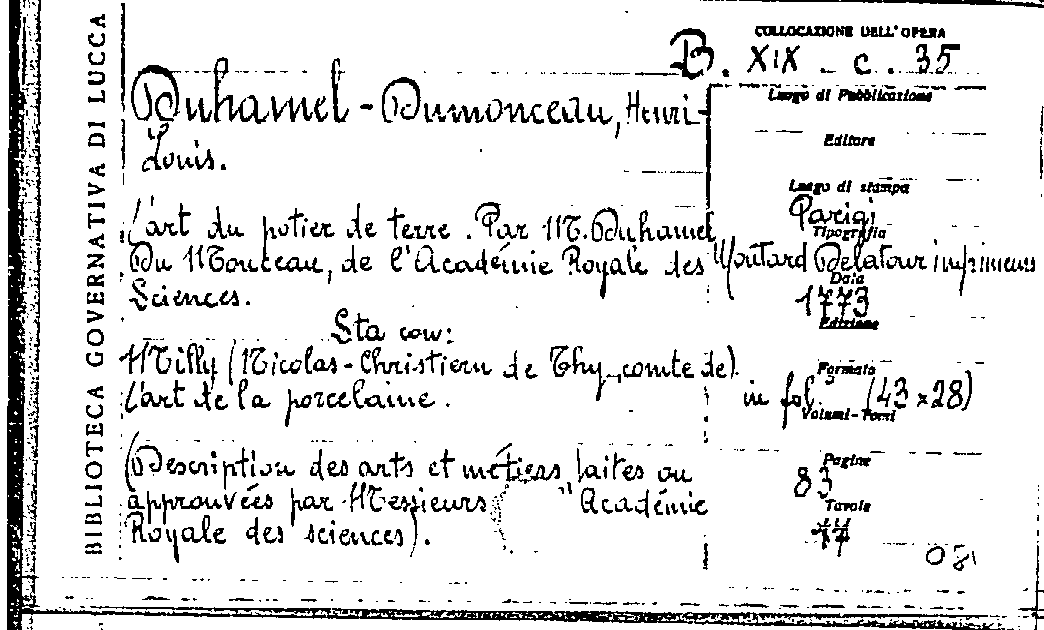 BIBLIOTECA GOVERNATIVA DI LUCCA
COLLOCAZIONE DELL'OPERA
B. XIX - c. 35
Duhamel - Dumonceau, Henri-
Louis.
L'art du potier de terre. Par M. Duhamel
Du Monceau, de l'Académie Royale des
Sciences.
Sta con:
Milly (Nicolas-Christiern de Thy, comte de).
L'art de la porcelaine.
(Description des arts et métiers, faites ou
approuvées par Messieurs " Académie
Royale des sciences).
Luogo di Pubblicazione
Editore
Luogo di stampa
Parigi
Tipografia
Moutard Delatour imprimeurs
Data
1773
Edizione
Formato
in fol.° (43 x 28)
Volumi-Tomi
Pagine
83
Tavole
17